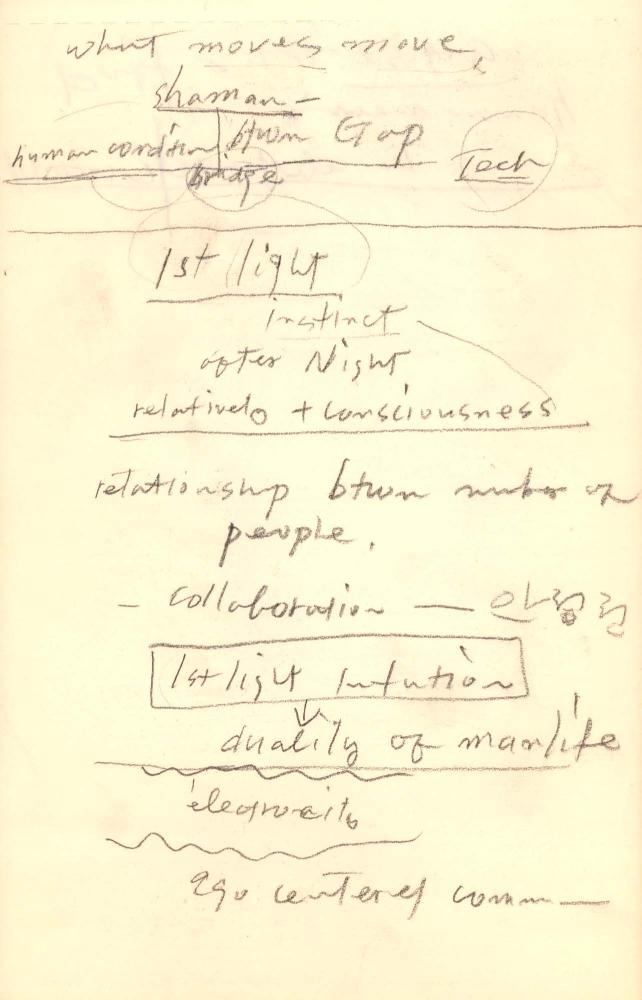 what moves, move,
shaman —
human condition btwn Gap
bridge Tech
1st light
instinct
after Night
relatively + consciousness
relationship btwn number of
people.
— collaboration —
1st light Intution
duality of man/life
ego centered comm—